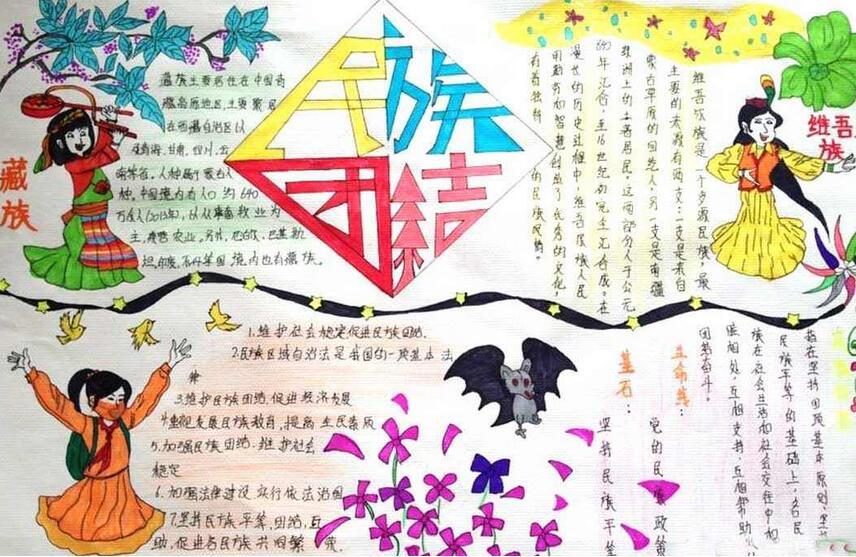 民族
团结
藏族
藏族主要居住在中国青
藏高原地区,主要聚居
在西藏自治区以
及青海、甘肃、四川、云
南等省。人种属于蒙古人
种。中国境内有人口约640
万余人(2013年),以从事畜牧业为
主,兼营农业。另外,巴
坦、印度、不丹等国境内也有藏族。
维吾
族
维吾尔族是一个多源民族,最
主要的来源有两支:一支是来自
蒙古草原的回纥人,另一支是南疆
绿洲上的土著居民。这两部分人于公元
840年汇合,至16世纪初完全汇合成。在
漫长的历史过程中,维吾尔族人民
用勤劳和智慧创造了优秀的文化,
有着独特的民族风情。
1.维护社会稳定,促进民族团结。
2.民族区域自治法是我国的一项基本法
律
3.维护民族团结,促进经济发展
4.重视发展民族教育,提高全民素质
5.加强民族团结,维护社会
稳定
6.加强法律建设,实行依法治国
7.坚持民族平等,团结,互
助,促进各民族共同繁荣
指在坚持四项基本原则、坚持
民族平等的基础上,各民
族在社会生活和社会交往中和
睦相处、互相支持、互相帮助
团结奋斗。
生命线:
党的民族政策
基石:
坚持民族平等